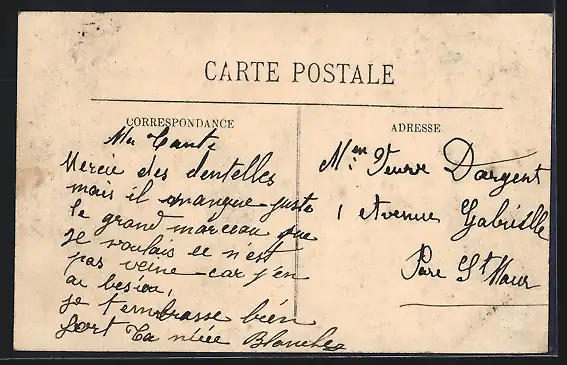 CARTE POSTALE
CORRESPONDANCE
Ma Tante
Mercie des dentelles
mais il manque juste
le grand morceau que
je voulais ce n'est
pas veine car j'en
ai besoin,
je t'embrasse bien
fort Ta nièce Blanche
ADRESSE
Veuve Dargent
1 Avenue Gabrielle
Parc St Maur